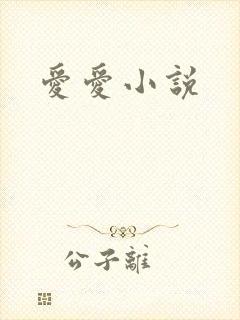 愛愛小說
公子離